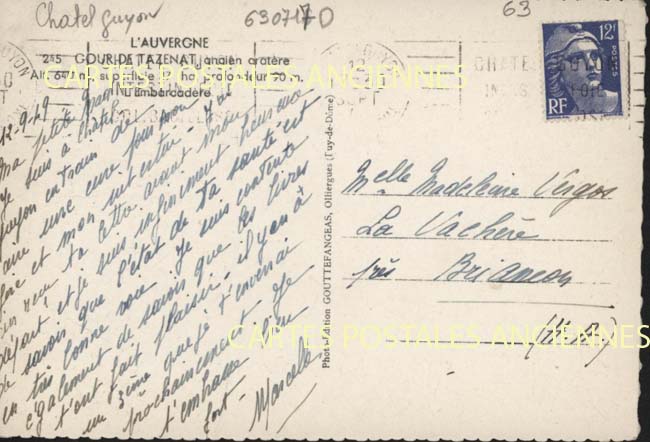 Chatelguyon
630717D
63
L'AUVERGNE
215 GOUR DE TAZENAT (ancien cratère
L'Embarcadère
12f
POSTES
RF
CHATEL GUYON
SEPT
CARTES POSTALES ANCIENNES
12-9-49
Ma petite
Je suis à Châtel
guyon en train de
faire une cure pour mon
et mon intestin. J'ai
ta lettre avant mon
départ et je suis infiniment heureuse
de savoir que l'état de ta santé est
en très bonne voie. Je suis contente
également de savoir que les livres
t'ont fait plaisir. il y en a
un 3ème que je t'enverrai
prochainement. Je
t'embrasse bien
fort. Marcelle
Photo-édition GOUTTEFANGEAS, Olliergues (Puy-de-Dôme)
Melle Madeleine
La Vachère
près Briançon
CARTES POSTALES ANCIENNES